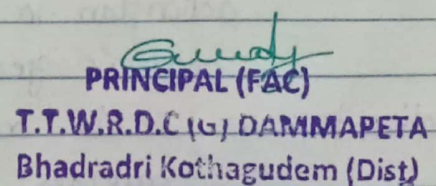 PRINCIPAL (FAC)
T.T.W.R.D.C (G) DAMMAPETA
Bhadradri Kothagudem (Dist)